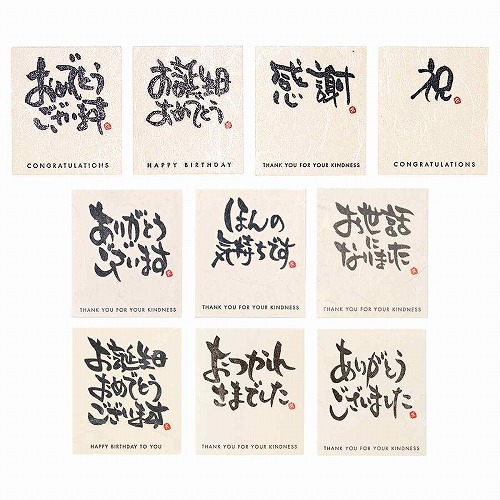 おめでとう
ございます
CONGRATULATIONS
お誕生日
おめでとう
HAPPY BIRTHDAY
感謝
THANK YOU FOR YOUR KINDNESS
祝
CONGRATULATIONS
ありがとう
ございます
THANK YOU FOR YOUR KINDNESS
ほんの
気持ちです
THANK YOU FOR YOUR KINDNESS
お世話
に
なりました
THANK YOU FOR YOUR KINDNESS
お誕生日
おめでとう
ございます
HAPPY BIRTHDAY TO YOU
おつかれ
さまでした
THANK YOU FOR YOUR KINDNESS
ありがとう
ございました
THANK YOU FOR YOUR KINDNESS